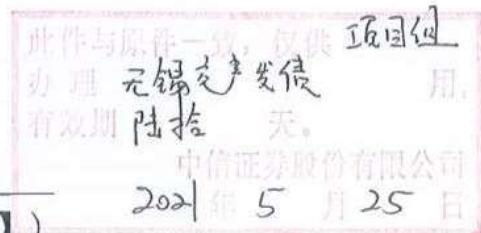 此件与原件一致，仅供 项目组
办理 无锡交产发债 用，
有效期 陆拾 天。
中信证券股份有限公司
2021 年 5 月 25 日